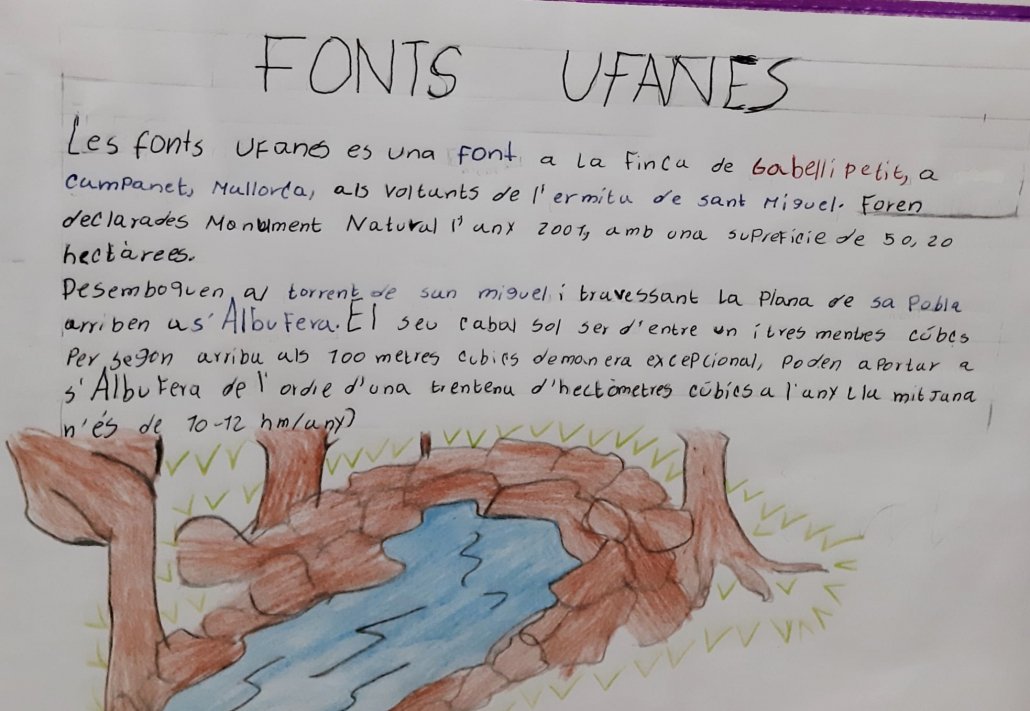 FONTS UFANES
Les fonts UFanes es una font a la Finca de Gabelli petit, a
Campanet, Mallorca, als voltants de l'ermita de sant Miguel. Foren
declarades Monument Natural l'anx 2001, amb una supreficie de 50,20
hectàrees.
Desemboquen al torrent de san miguel i travessant La Plana de sa Pobla
arriben a s'AlbuFera. El seu cabal sol ser d'entre un i tres mentres cúbcs
Per segon arriba als 100 metres cubics demanera excepcional, Poden aPortar a
s'AlbuFera de l'ordie d'una trentena d'hectòmetres cúbics a l'any (la mitjana
n'és de 10-12 hm/any)